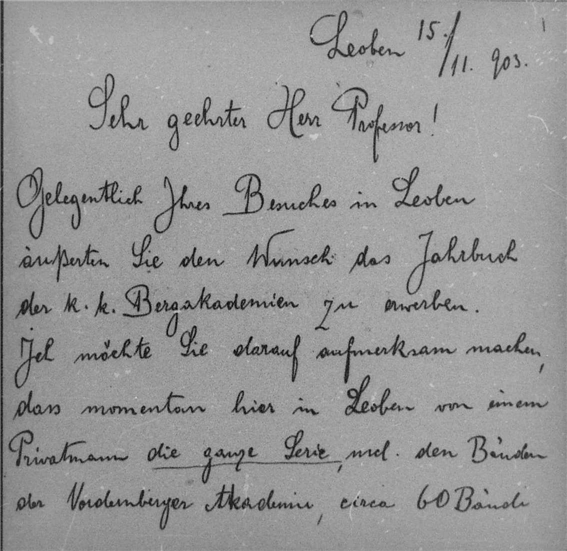 Leoben 15./11. 903.
Sehr geehrter Herr Professor!
Gelegentlich Ihres Besuches in Leoben
äußerten Sie den Wunsch das Jahrbuch
der k. k. Bergakademien zu erwerben.
Ich möchte Sie darauf aufmerksam machen,
dass momentan hier in Leoben von einem
Privatmann die ganze Serie, incl. den Bänden
der Vordernberger Akademie, circa 60 Bände